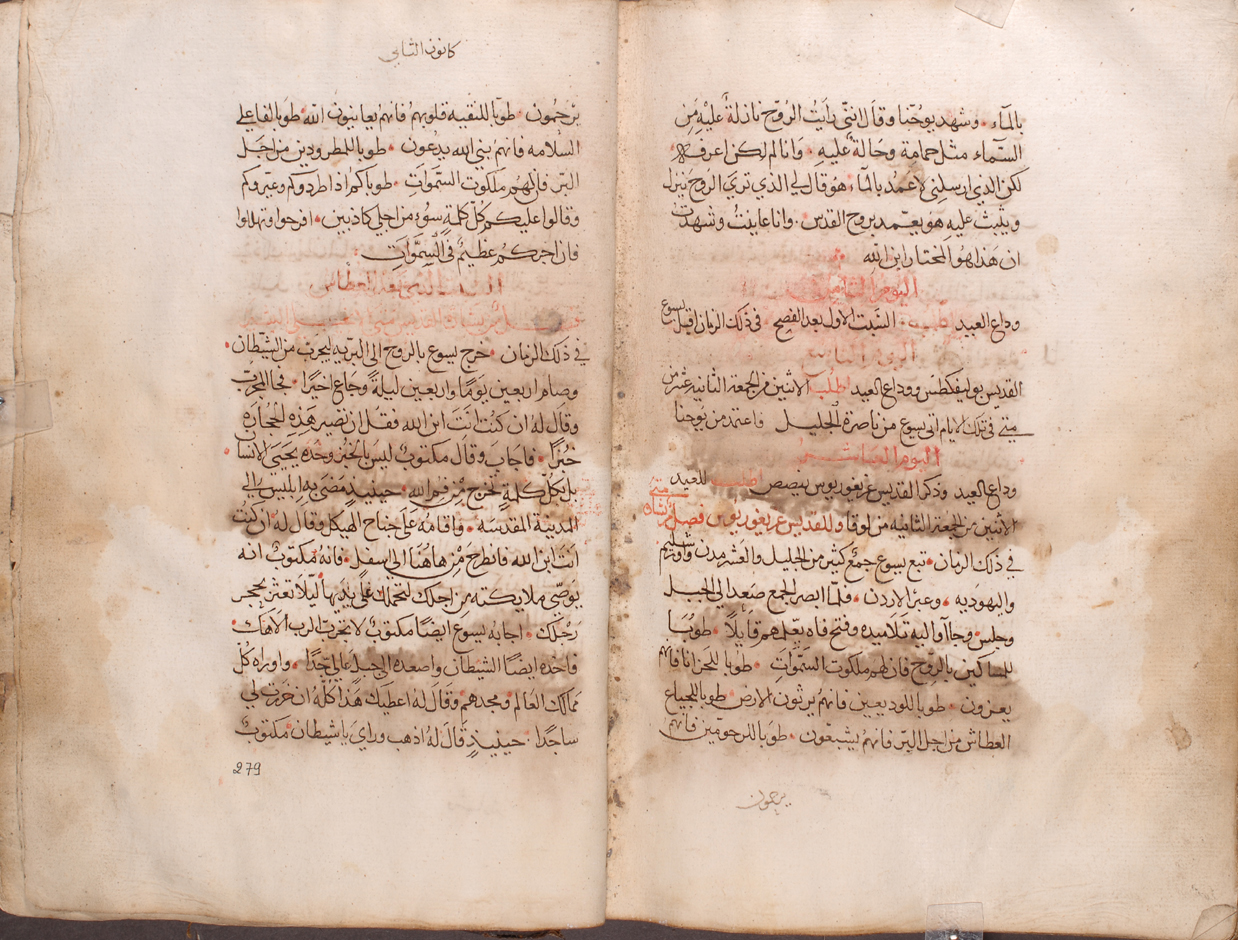 بالماء · وشهد يوحنا وقال انني رايت الروح نازلة عليه من
السماء مثل حمامة وحالة عليه · وانا لم اكن اعرفه
لكن الذي ارسلني لاعمد بالماء هو قال لي الذي تري الروح ينزل
ويثبت عليه هو يعمد بروح القدس · وانا عاينت وشهدت
ان هذا هو المختار ابن الله
اليوم الثامن
وداع العيد · السبت الاول بعد الفصح · في ذلك الزمان اقبل يسوع
اليوم التاسع
القديس بوليفكطس ووداع العيد اطلب الاثنين من الجمعة الثانية عشر من
متي في تلك الايام اتى يسوع من ناصرة الجليل واعتمد من يوحنا
اليوم العاشر
وداع العيد وذكر القديس غريغوريوس نيصص اطلب للعيد
الاثنين من الجمعة الثانيه من لوقا وللقديس غريغوريوس فصل من بشارة متي
في ذلك الزمان · تبع يسوع جمع كثير من الجليل والعشر مدن واورشليم
واليهوديه · وعبر الاردن · فلما ابصر الجمع صعد الي الجبل
وجلس وجاآوا اليه تلاميذه وفتح فاه يعلمهم قايلا · طوبا
للمساكين بالروح فان لهم ملكوت السموات · طوبا للحزانا فانهم
يعزون · طوبا للوديعين فانهم يرثون الارض · طوبا للجياع
العطاش من اجل البر فانهم يشبعون · طوبا للرحومين فانهم
يرحمون
كانون الثاني
يرحمون · طوبا للنقيه قلوبهم فانهم يعاينون الله · طوبا لفاعلي
السلامه فانهم بني الله يدعون · طوبا للمطرودين من اجل
البر فان لهم ملكوت السموات · طوباكم اذا طردوكم وعيروكم
وقالوا عليكم كل كلمة سوء من اجلي كاذبين · افرحوا وتهللوا
فان اجركم عظيم في السموات ·
في ذلك الزمان · خرج يسوع بالروح الى البريه ليجرب من الشيطان ·
وصام اربعين يوما واربعين ليلة وجاع اخيرا · فجا المجرب
وقال له ان كنت انت ابن الله فقل ان تصير هذه الحجارة
خبزا · فاجاب وقال مكتوب ليس بالخبز وحده يحيى الانسان ·
بل بكل كلمة تخرج من فم الله · حينيذ مضى به ابليس الي
المدينة المقدسه · واقامه على جناح الهيكل وقال له ان كنت
انت ابن الله فانطرح من هاهنا الي اسفل · فانه مكتوب انه
يوصي ملايكته من اجلك لتحملك على يديها ليلا تعثر بحجر
رجلك · اجابه يسوع ايضا مكتوب لا تجرب الرب الاهك ·
فاخذه ايضا الشيطان واصعده الى جبل عالي جدا · واوراه كل
ممالك العالم ومجدهم · وقال له اعطيك هذا كله ان خررت لي
ساجدا · حينيذ قال له اذهب وراي يا شيطان مكتوب
279